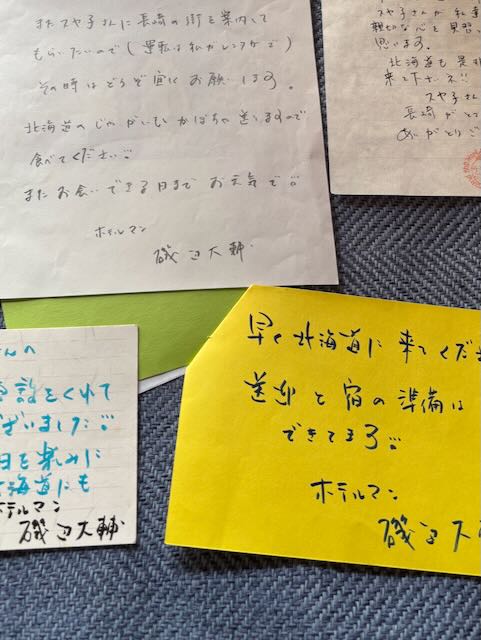 またスヤ子さんに長崎の街を案内して
もらいたいので(運転は私がレンタカーで)
その時はどうぞ宜くお願いします。
北海道のじゃがいもかぼちゃ送りますので
食べてください
またお会いできる日までお元気で
ホテルマン
磯辺大輔
スヤ子さんが私達
親切な心を見習
思います。
北海道も是非
来て下さいネ!!
スヤ子さん
長崎がとっ
ありがとうご
んへ
設をくれて
ざいました
日を楽みに
海道にも
ホテルマン
磯辺大輔
早く北海道に来てくださ
送迎と宿の準備は
できてるヨ
ホテルマン
磯辺大